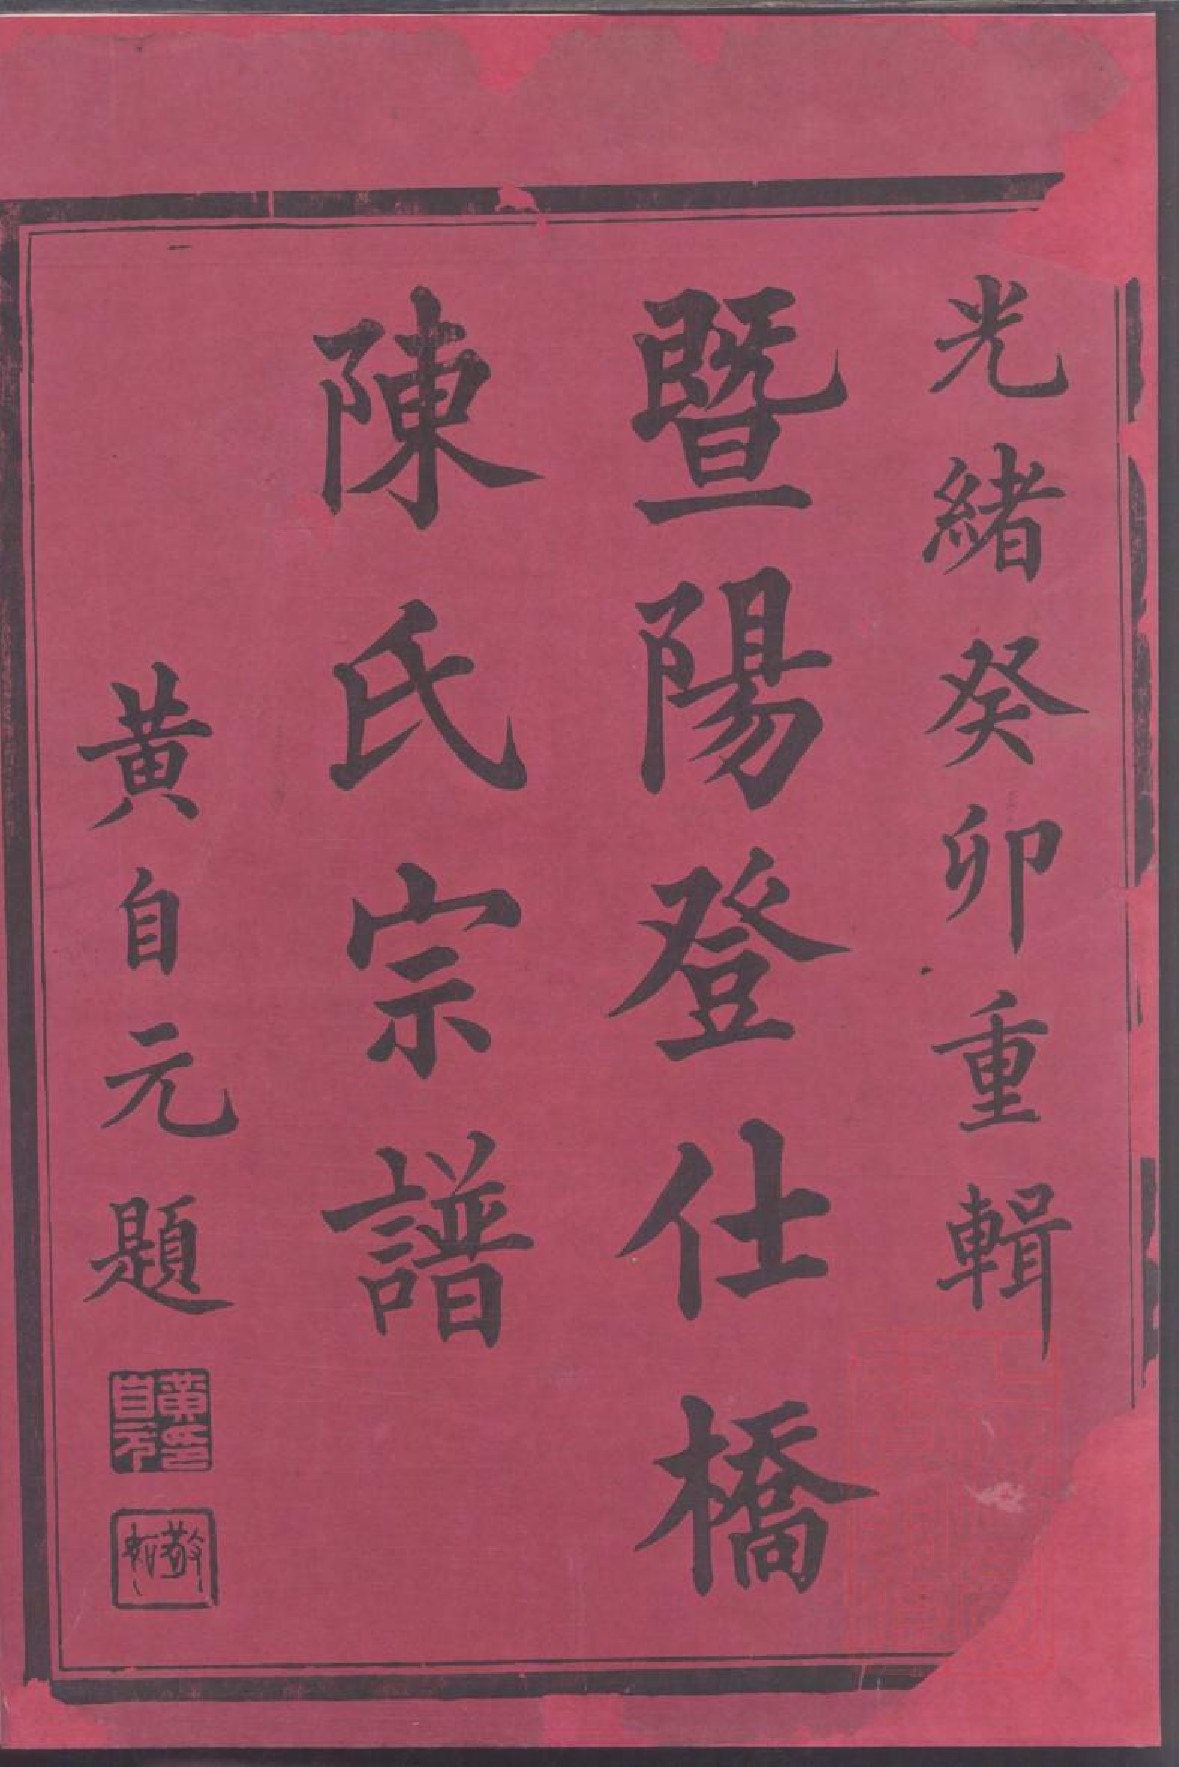 光緒癸卯重輯
暨陽登仕橋
陳氏宗譜
黃自元題
黃自元印